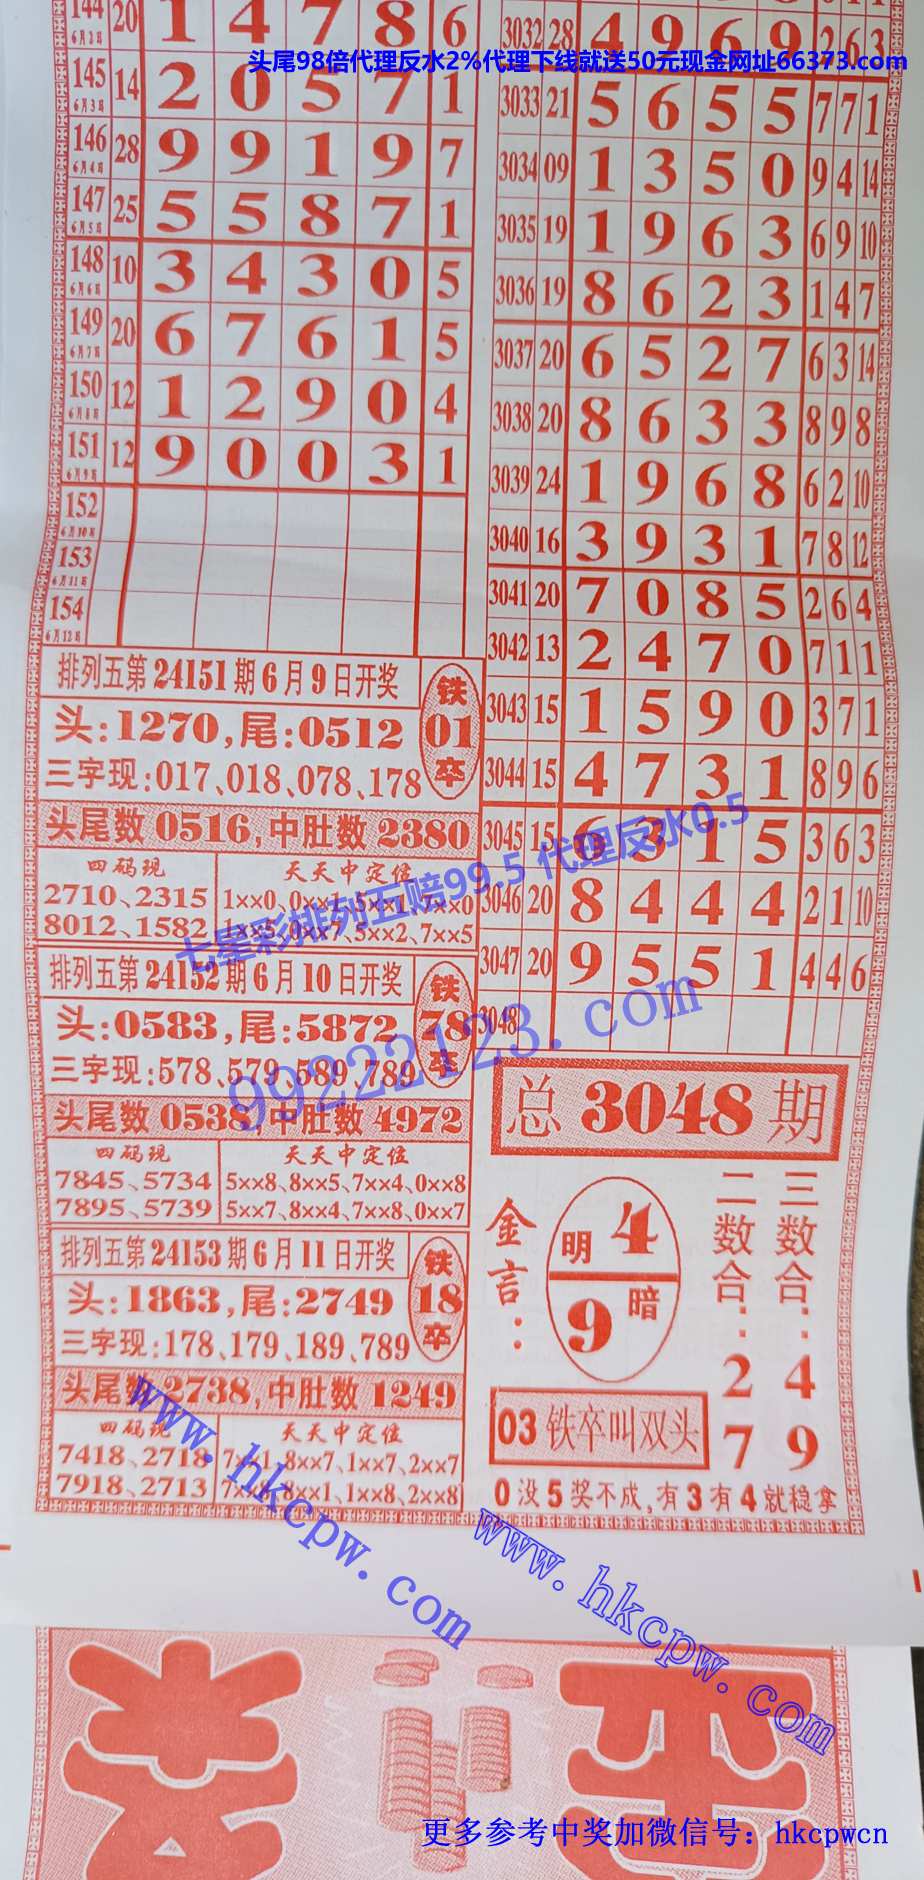 144 6月2日 20 1 4 7 8 6
145 6月3日 14 2 0 5 7 1
146 6月4日 28 9 9 1 9 7
147 6月5日 25 5 5 8 7 1
148 6月6日 10 3 4 3 0 5
149 6月7日 20 6 7 6 1 5
150 6月8日 12 1 2 9 0 4
151 6月9日 12 9 0 0 3 1
152 6月10日
153 6月11日
154 6月12日
排列五第24151期6月9日开奖
头:1270,尾:0512
三字现:017、018、078、178
铁01卒
头尾数0516,中肚数2380
四码现
2710、2315
8012、1582
天天中定位
1××0、0××1、5××1、7××0
1××5、0××7、5××2、7××5
排列五第24152期6月10日开奖
头:0583,尾:5872
三字现:578、579、589、789
铁78卒
头尾数0538,中肚数4972
四码现
7845、5734
7895、5739
天天中定位
5××8、8××5、7××4、0××8
5××7、8××4、7××8、0××7
排列五第24153期6月11日开奖
头:1863,尾:2749
三字现:178、179、189、789
铁18卒
头尾数2738,中肚数1249
四码现
7418、2718
7918、2713
天天中定位
7××1、8××7、1××7、2××7
8××1、1××8、2××8
3032 28 4 9 6 9 2 6 3
3033 21 5 6 5 5 7 7 1
3034 09 1 3 5 0 9 4 14
3035 19 1 9 6 3 6 9 10
3036 19 8 6 2 3 1 4 7
3037 20 6 5 2 7 6 3 14
3038 20 8 6 3 3 8 9 8
3039 24 1 9 6 8 6 2 10
3040 16 3 9 3 1 7 8 12
3041 20 7 0 8 5 2 6 4
3042 13 2 4 7 0 7 1 1
3043 15 1 5 9 0 3 7 1
3044 15 4 7 3 1 8 9 6
3045 15 6 3 1 5 3 6 3
3046 20 8 4 4 4 2 1 10
3047 20 9 5 5 1 4 4 6
3048
总3048期
金言:
明4
9暗
二数合:27
三数合:49
03铁卒叫双头
0没5奖不成,有3有4就稳拿
头尾98倍代理反水2%代理下线就送50元现金网址66373.com
七星彩排列五赔99.5 代理反水0.5
99222123.com
www.hkcpw.com
www.hkcpw.com
更多参考中奖加微信号：hkcpwcn